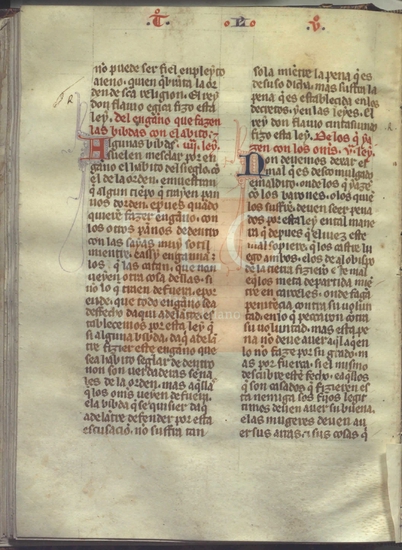 T L o V
no puede ser fiel en pleyto
aieno, quien qbranta la or
den de sca religion. El rey
don flauio egica fizo esta
ley. del engaño que fazen
las bibdas con el abito. iiij. ley.
Algunas bibdas
suelen mesclar por en
gaño el habito del sieglo, co
el de la orden, e muestran
algun tiempo q trayen pan
nos dorden, e pues quado
quieren fazer engaño, con
los otros paños de dentro
con las sayas muy sotil
miente,
los, q las catan, que non
ueyen otra cosa dellas, si
no lo q tienen de fuera, e por
ende, que todo engaño sea
desfecho daqui adelante, es
tablecemos por esta ley q
si alguna bibda, daq adela
tre fiziere este engaño que
sea habito seglar de dentro
non son uerdaderas seña
les de la orden, mas aqlla
q los omes ueyen de fuera,
e la bibda q se quisier daq
adelante defender por esta
escusacio, no sufra tan
sola miente la pena q es
de suso dicha, mas sufra la
pena q es establecida en los
decretos, y en las leyes. El
rey don flauio cintasuindo
fizo esta ley. De los q ya
zen con los omes. v. ley.
Non deuemos dexar el
mal que es descomulgado
e maldito, onde los q yaze
co los barones, o los que
los sufre, deuen seer pena
dos por esta ley en tal mane
ra q de pues que el iuez este
mal sopiere, q los castre lu
ego ambos, e los de al obispo
de la tierra
en los meta departida mie
tre en carceles, onde faga
penitecia contra su volun
tad, en lo q pecaron con
su voluntad, mas esta pe
na no deue auer, el q aque
lo no faze por su grado, m
as por fuerça, si el mismo
descubre este fecho, e aqllos
q son casados q fizieren es
ta nemiga sos fijos legit
timos deuen auer su buena,
e las mugeres deuen au
er sus arras, e sus cosas q